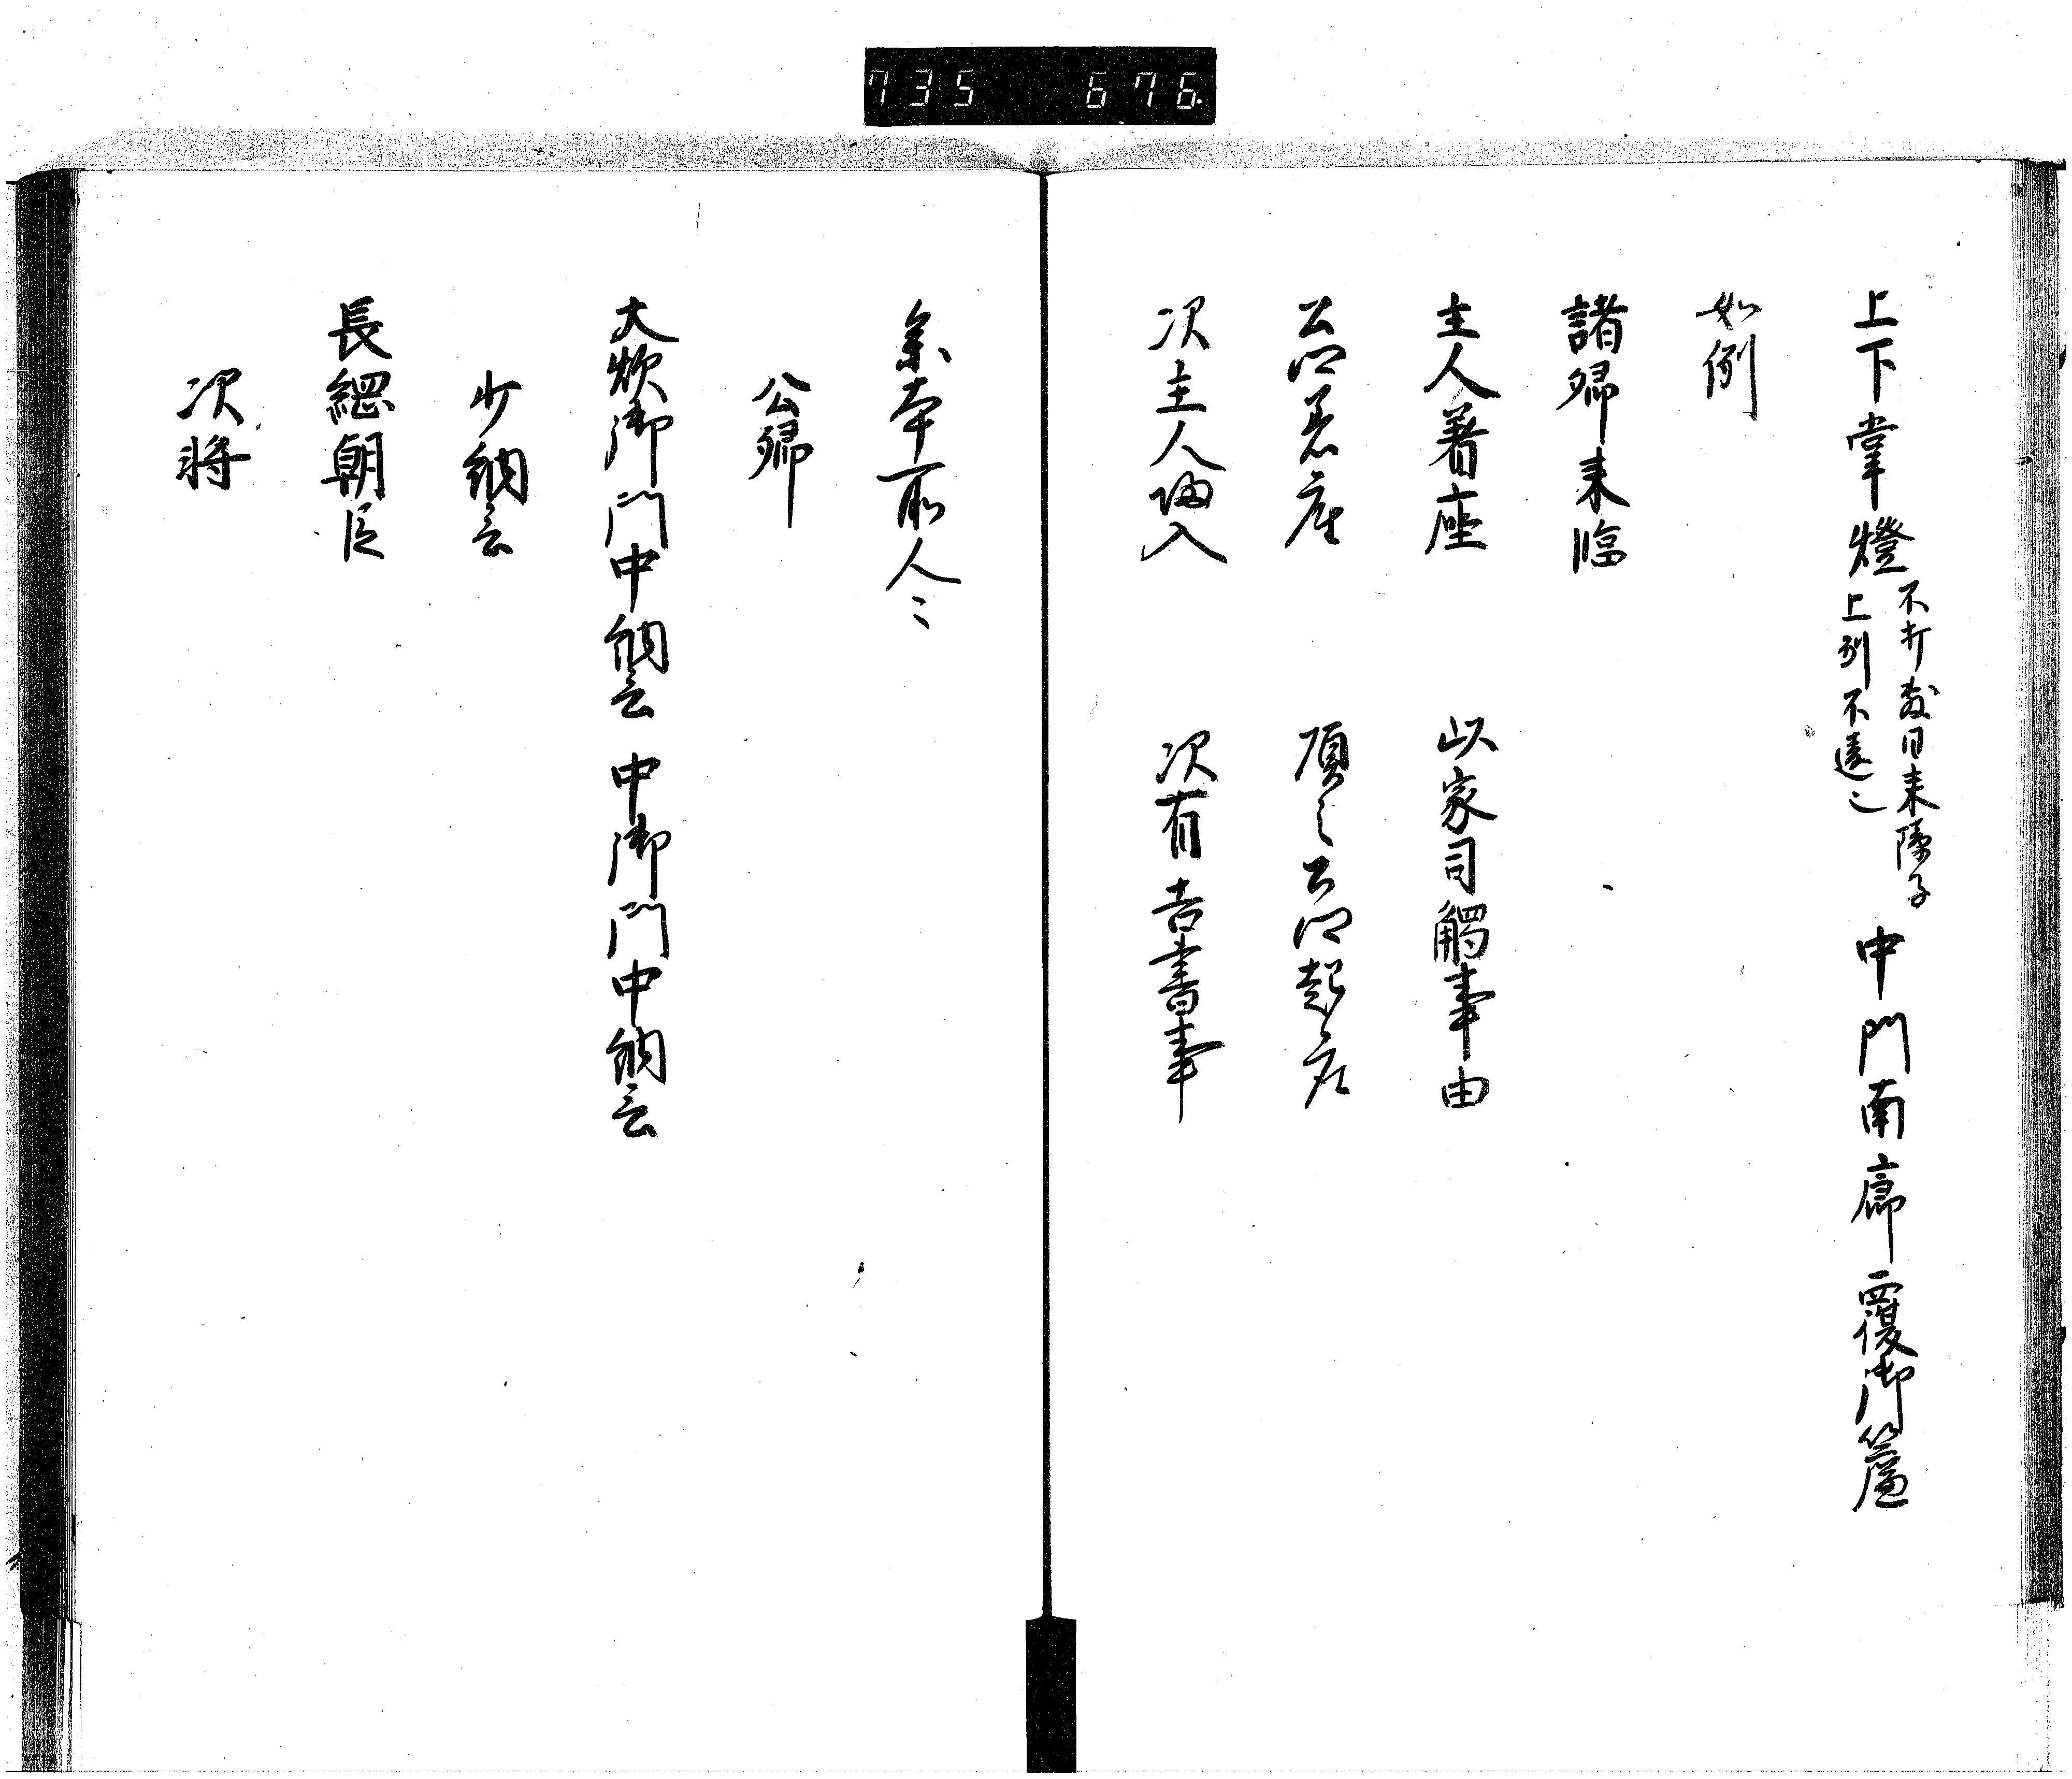 735 676
上下掌燈 不打敷日来障子 上列不遠之 中門南廊覆御簾
如例
諸卿来臨
主人著座 以家司觸事由
公卿着座 頃之公卿起座
次主人帰入 次有吉書事
参本所人々
公卿
大炊御門中納言 中御門中納言
少納言
長綱朝臣
次将